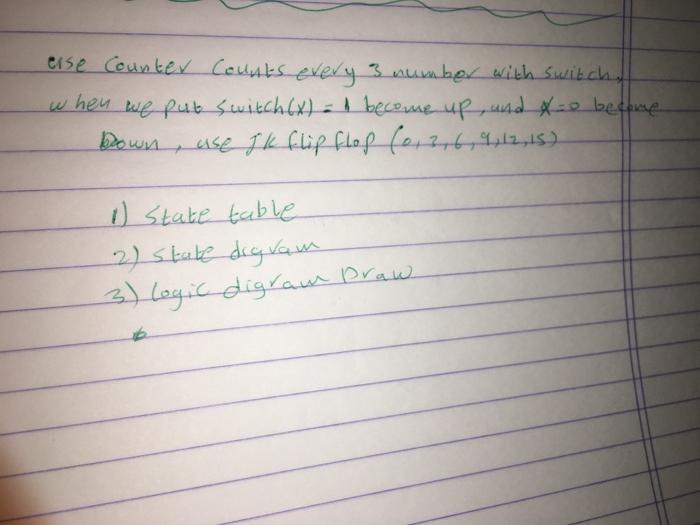 use Counter Counts every 3 number with switch,
when we put switch(x) = 1 become up, and x=0 become
Down, use JK flip flop (0,3,6,9,12,15)
1) State table
2) State digram
3) logic digram Draw